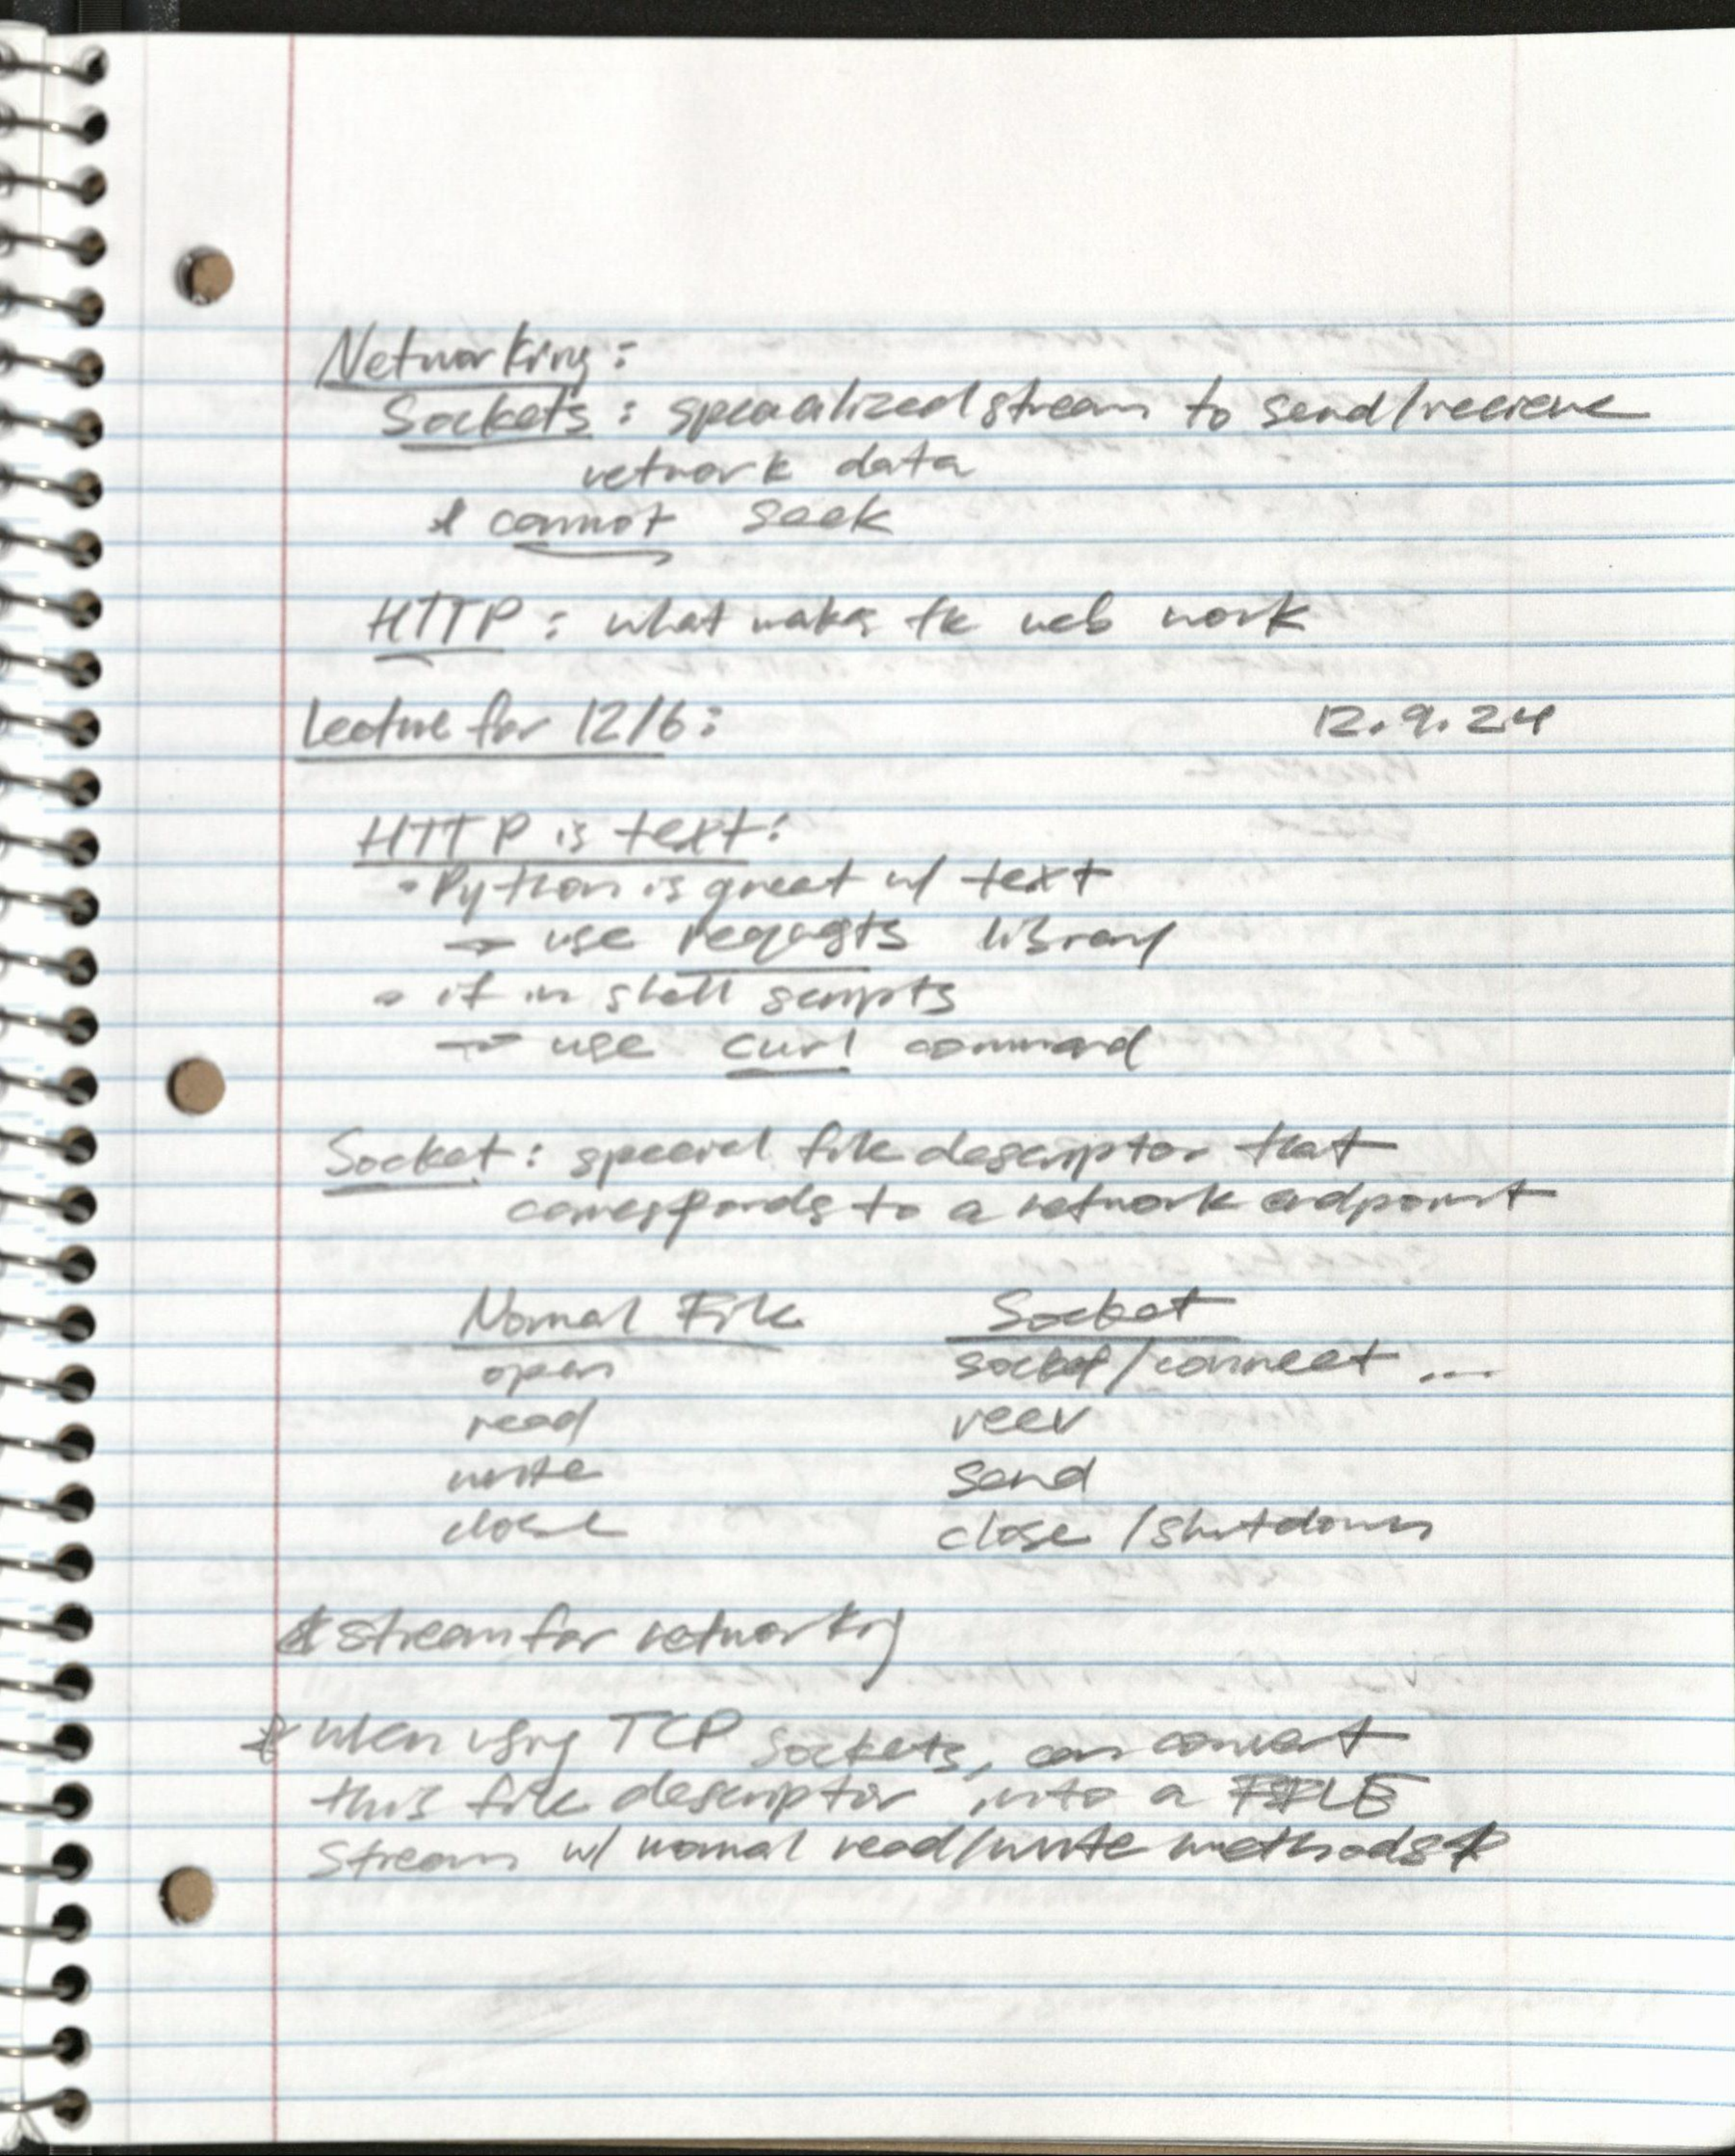 Networking:
Sockets: specialized stream to send/recieve
network data
* cannot seek
HTTP: what makes the web work
Lecture for 12/6: 12.9.24
HTTP is text:
• Python is great w/ text
→ use requests library
• if in shell scripts
→ use curl command
Socket: special file descriptor that
corresponds to a network endpoint
Normal File Socket
open socket/connect ...
read recv
write send
close close/shutdown
* stream for networking
* when using TCP sockets, can convert
this file descriptor into a FILE
stream w/ normal read/write methods *